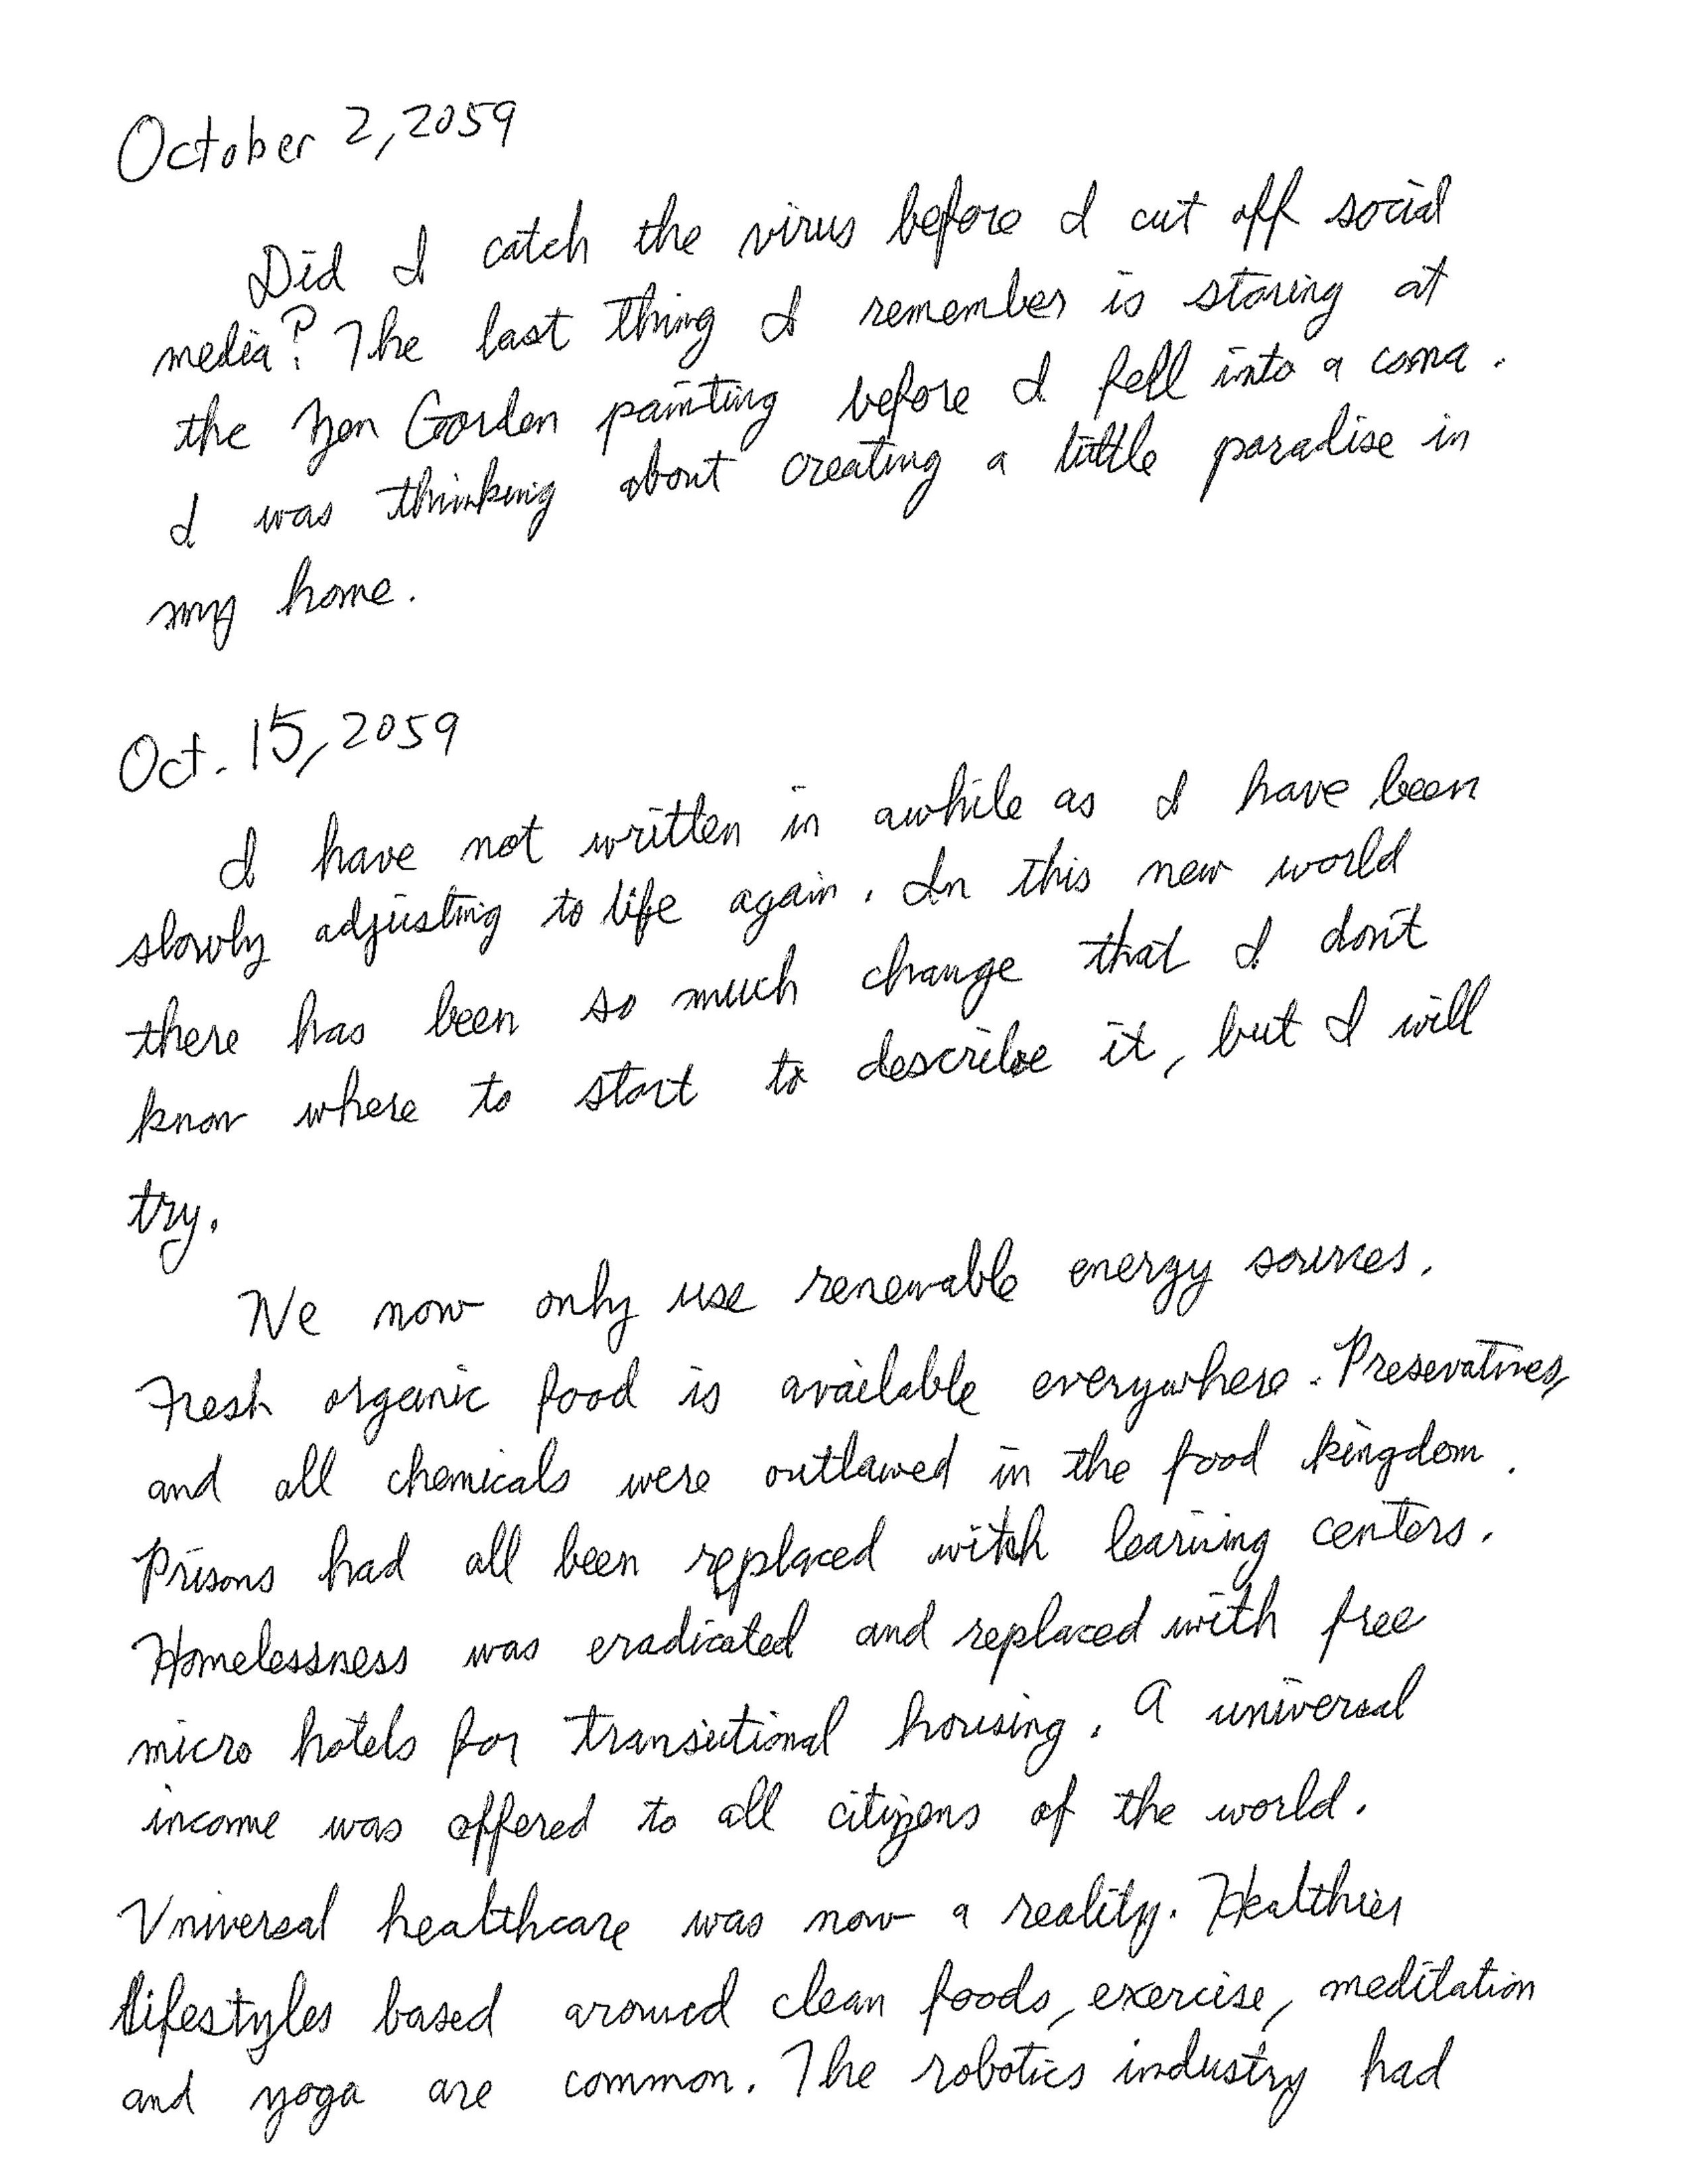 October 2, 2059
Did I catch the virus before I cut off social
media? The last thing I remember is staring at
the Zen Garden painting before I fell into a coma.
I was thinking about creating a little paradise in
my home.
Oct. 15, 2059
I have not written in awhile as I have been
slowly adjusting to life again. In this new world
there has been so much change that I don't
know where to start to describe it, but I will
try.
We now only use renewable energy sources.
Fresh organic food is available everywhere. Presevatives,
and all chemicals were outlawed in the food kingdom.
Prisons had all been replaced with learning centers.
Homelessness was eradicated and replaced with free
micro hotels for transitional housing. A universal
income was offered to all citizens of the world.
Universal healthcare was now a reality. Healthier
lifestyles based around clean foods, exercise, meditation
and yoga are common. The robotics industry had